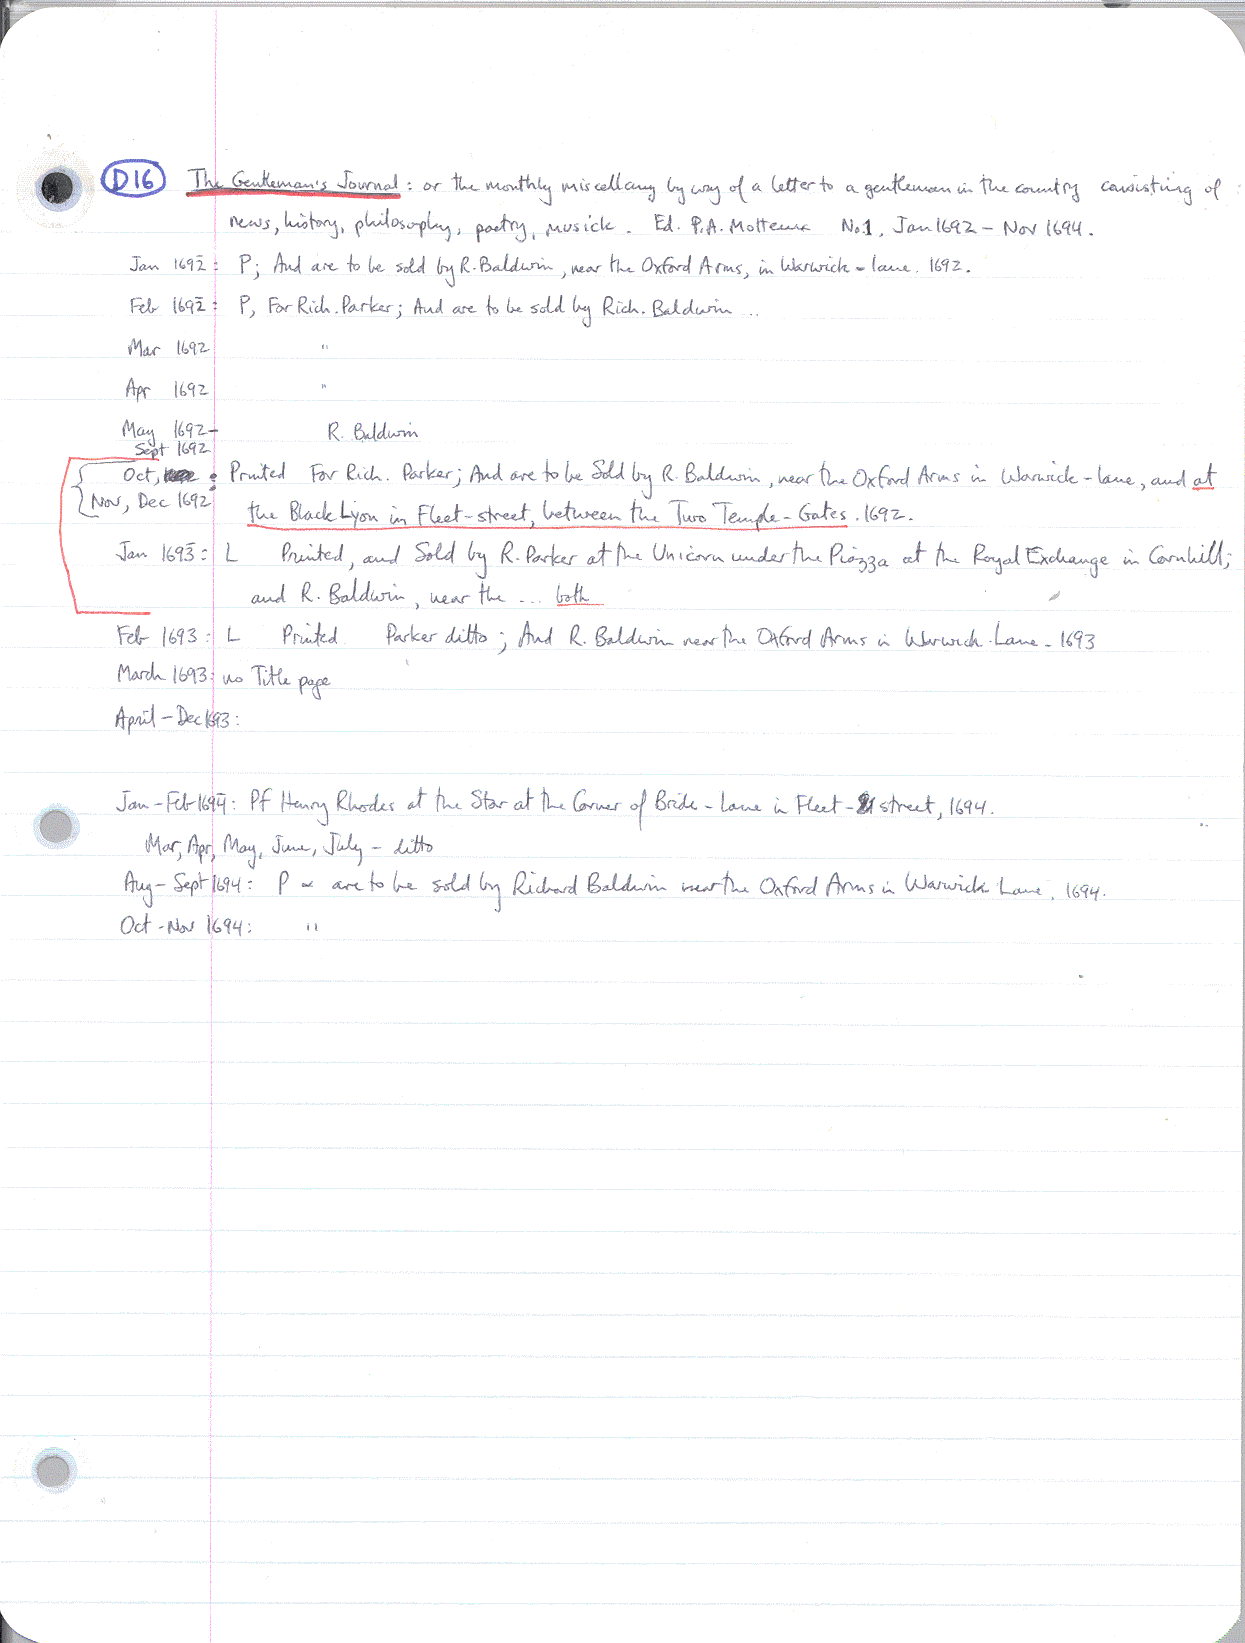 D16 The Gentleman's Journal: or the monthly miscellany by way of a letter to a gentleman in the country consisting of:
news, history, philosophy, poetry, musick. Ed. P.A. Motteux No.1, Jan 1692 – Nov 1694.
Jan 1692: P; And are to be sold by R. Baldwin, near the Oxford Arms, in Warwick-lane. 1692.
Feb 1692: P, For Rich. Parker; And are to be sold by Rich. Baldwin ...
Mar 1692 "
Apr 1692 "
May 1692– R. Baldwin
Sept 1692
Oct, : Printed For Rich. Parker; And are to be Sold by R. Baldwin, near the Oxford Arms in Warwick-lane, and at
Nov, Dec 1692 the Black Lyon in Fleet-street, between the Two Temple-Gates. 1692.
Jan 1693: L Printed, and Sold by R. Parker at the Unicorn under the Piazza at the Royal Exchange in Cornhill;
and R. Baldwin, near the ... both
Feb 1693: L Printed Parker ditto; And R. Baldwin near the Oxford Arms in Warwick-Lane. 1693
March 1693: no Title page
April – Dec 1693:
Jan – Feb 1694: Pf Henry Rhodes at the Star at the Corner of Bride-Lane in Fleet-street, 1694.
Mar, Apr, May, June, July – ditto
Aug – Sept 1694: P are to be sold by Richard Baldwin near the Oxford Arms in Warwick Lane. 1694.
Oct - Nov 1694: "